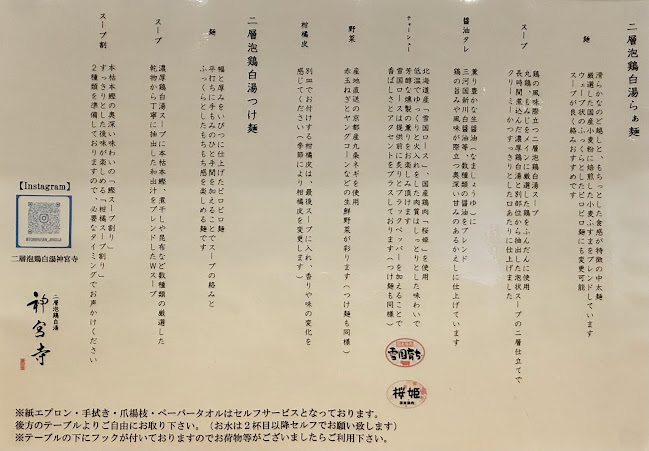 二層泡鶏白湯らぁ麺
麺
滑らかなのど越しと、もちっとした食感が特徴の中太麺
厳選した国産小麦粉に焙煎した小麦ふすまをブレンドしています
ウェーブ状のふっくらとしたピロピロ麺にも変更可能
スープが良く絡みおすすめです
スープ
鶏の風味際立つ二層泡鶏白湯スープ
丸鶏、もみじをメインに厳選した鶏をふんだんに使用
長時間煮込んだ濃厚鶏白湯と別部位から抽出した泡状スープの二層仕立てで
クリーミーかつすっきりとした口あたりに仕上げました
醤油タレ
薫り豊かな生醤油(なましょうゆ)に
三河国新川白醤油等、数種類の醤油をブレンド
鶏の旨みや風味が際立つ奥深い甘みのあるかえしに仕上げています
チャーシュー
北海道産「雪国ロース」、国産鶏肉「桜姫」を使用
低温でゆっくりと火入れをした肉質はしっとりとした味わいで
芳醇な燻製の薫りをお楽しみ頂けます
雪国ロースは提供前に炙りとブラックペッパーを加えることで
香ばしさとアクセントをプラスしております(つけ麺も同様)
野菜
産地直送の京都産九条ネギを使用
赤玉ねぎとヤングコーンなどの生鮮野菜が彩ります(つけ麺も同様)
柑橘皮
別皿でお付けする柑橘皮は、最後スープに入れ、香りや味の変化を
感じてください(季節により柑橘皮を変更します)
二層泡鶏白湯つけ麺
麺
幅と厚みをいびつに仕上げたピロピロ麺
平打ちに手もみのひと手間を加えることでスープの絡みと
ふっくらとしたもちもち感を楽しめる麺です
スープ
濃厚鶏白湯スープに本枯本鰹、煮干しや昆布など数種類の厳選した
乾物から丁寧に抽出した和出汁をブレンドしたWスープ
スープ割
本枯本鰹の奥深い味わいの「本鰹スープ割り」
すっきりとした後味が楽しめる「柑橘スープ割り」
2種類を準備しておりますので、必要なタイミングでお声かけください
雪国育ち
桜姫
【Instagram】
二層泡鶏白湯神宮寺
二層泡鶏白湯
神宮寺
※紙エプロン・手拭き・爪楊枝・ペーパータオルはセルフサービスとなっております。
後方のテーブルよりご自由にお取り下さい。(お水は2杯目以降セルフでお願い致します)
※テーブルの下にフックが付いておりますのでお荷物等がございましたらご利用下さい。